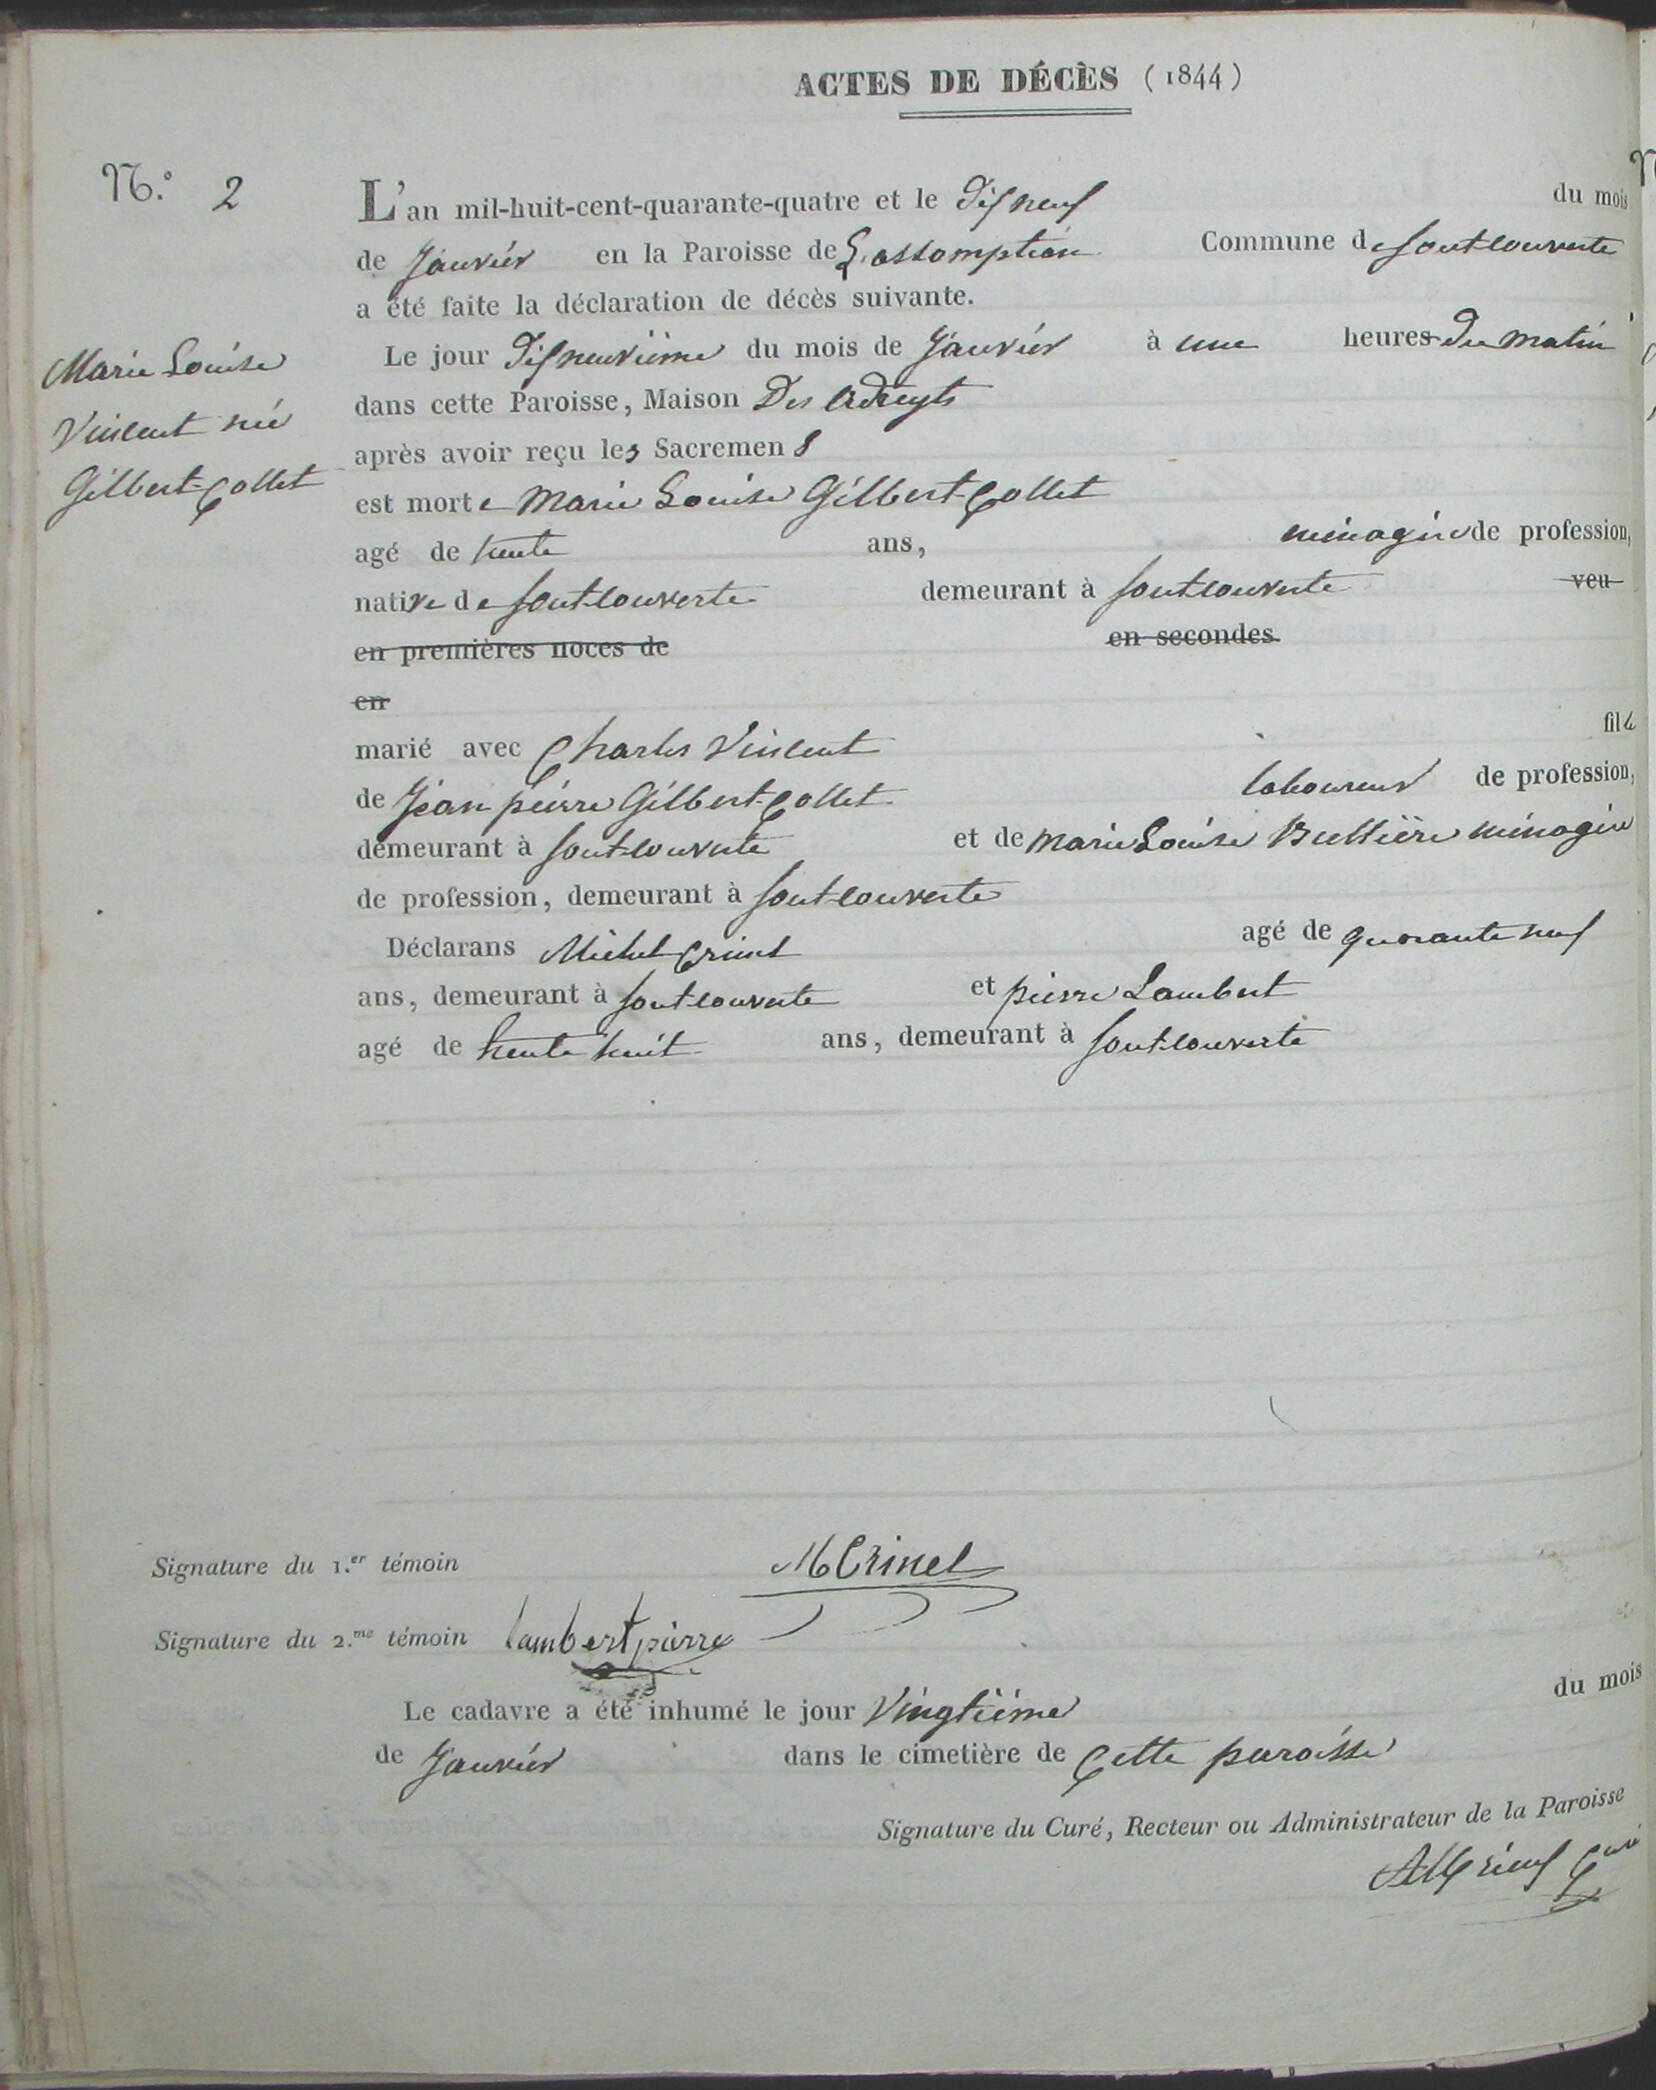 ACTES DE DÉCÈS (1844)
N.º 2
L'an mil-huit-cent-quarante-quatre et le Disneuf du mois
de Janvier en la Paroisse de L'assomption Commune de Fontcouverte
a été faite la déclaration de décès suivante.
Le jour Disneuvième du mois de Janvier à une heures du matin
dans cette Paroisse, Maison Des Adreyts
après avoir reçu les Sacremens
est morte Marie Louise Gilbert-Collet
agé de trente ans, ménagère de profession,
native de fontcouverte demeurant à fontcouverte veu
en premières noces de en secondes
en
marié avec Charles Vincent fille
de Jean pierre Gilbert-Collet laboureur de profession,
demeurant à fontcouverte et de marie Louise ménagère
de profession, demeurant à fontcouverte
Déclarans Michel Crinel agé de quarante neuf
ans, demeurant à fontcouverte et pierre Lambert
agé de trente huit ans, demeurant à fontcouverte
Marie Louise
Vincent née
Gilbert-Collet
Signature du 1.er témoin M Crinel
Signature du 2.me témoin lambert pierre
Le cadavre a été inhumé le jour Vingtième du mois
de Janvier dans le cimetière de Cette paroisse
Signature du Curé, Recteur ou Administrateur de la Paroisse
Curé